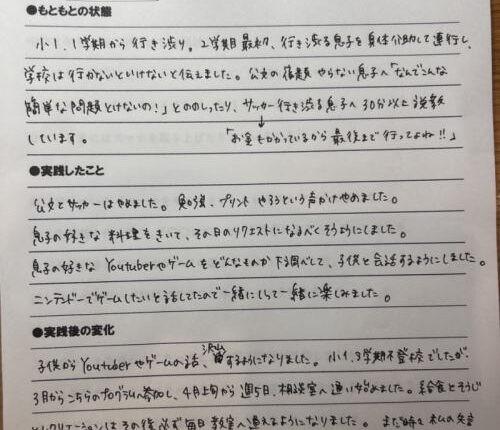 ●もともとの状態
小1、1学期から行き渋り。2学期最初、行き渋る息子を身体介助して連行し、
学校は行かないといけないと伝えました。公文の宿題やらない息子へ「なんでこんな
簡単な問題とけないの！」とののしったり、サッカー行き渋る息子へ30分以上説教
しています。
「お金もかかっているから最後まで行ってよね!!」
●実践したこと
公文とサッカーはやめました。勉強、プリントやろうという声かけやめました。
息子の好きな料理をきいて、その日のリクエストになるべくそうようにしました。
息子の好きなYoutuberやゲームをどんなものか下調べして、子供と会話するようにしました。
ニンテンドーでゲームしたいと話してたので一緒にして一緒に楽しみました。
●実践後の変化
子供からYoutuberやゲームの話、沢山するようになりました。小1、3学期不登校でしたが、
3月からこちらのプログラムへ参加し、4月上旬から週5日、相談室へ通い始めました。給食とそうじ
とレクリエーションはその後必ず毎日教室へ通えるようになりました。まだ時々私の失言